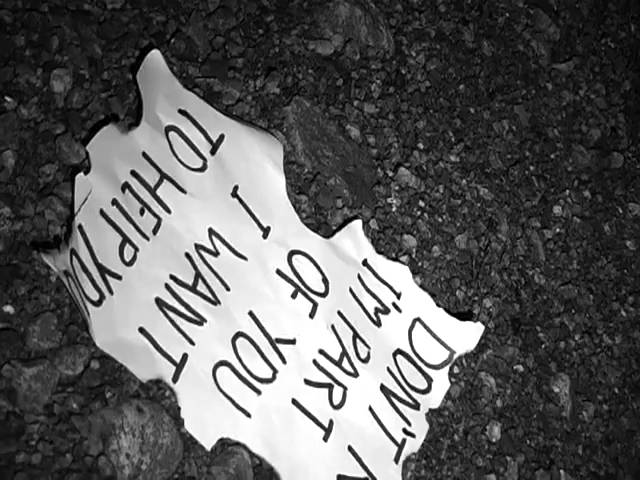 DON'T
I'M PART
OF YOU
I WANT
TO HELP YOU